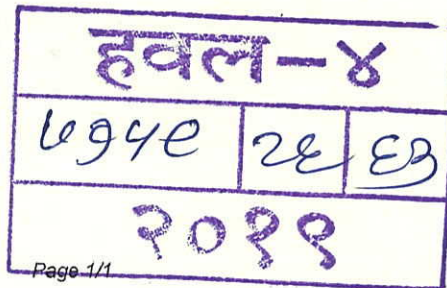 हवल-४
७१५९ २६ ६३
२०१९
Page 1/1